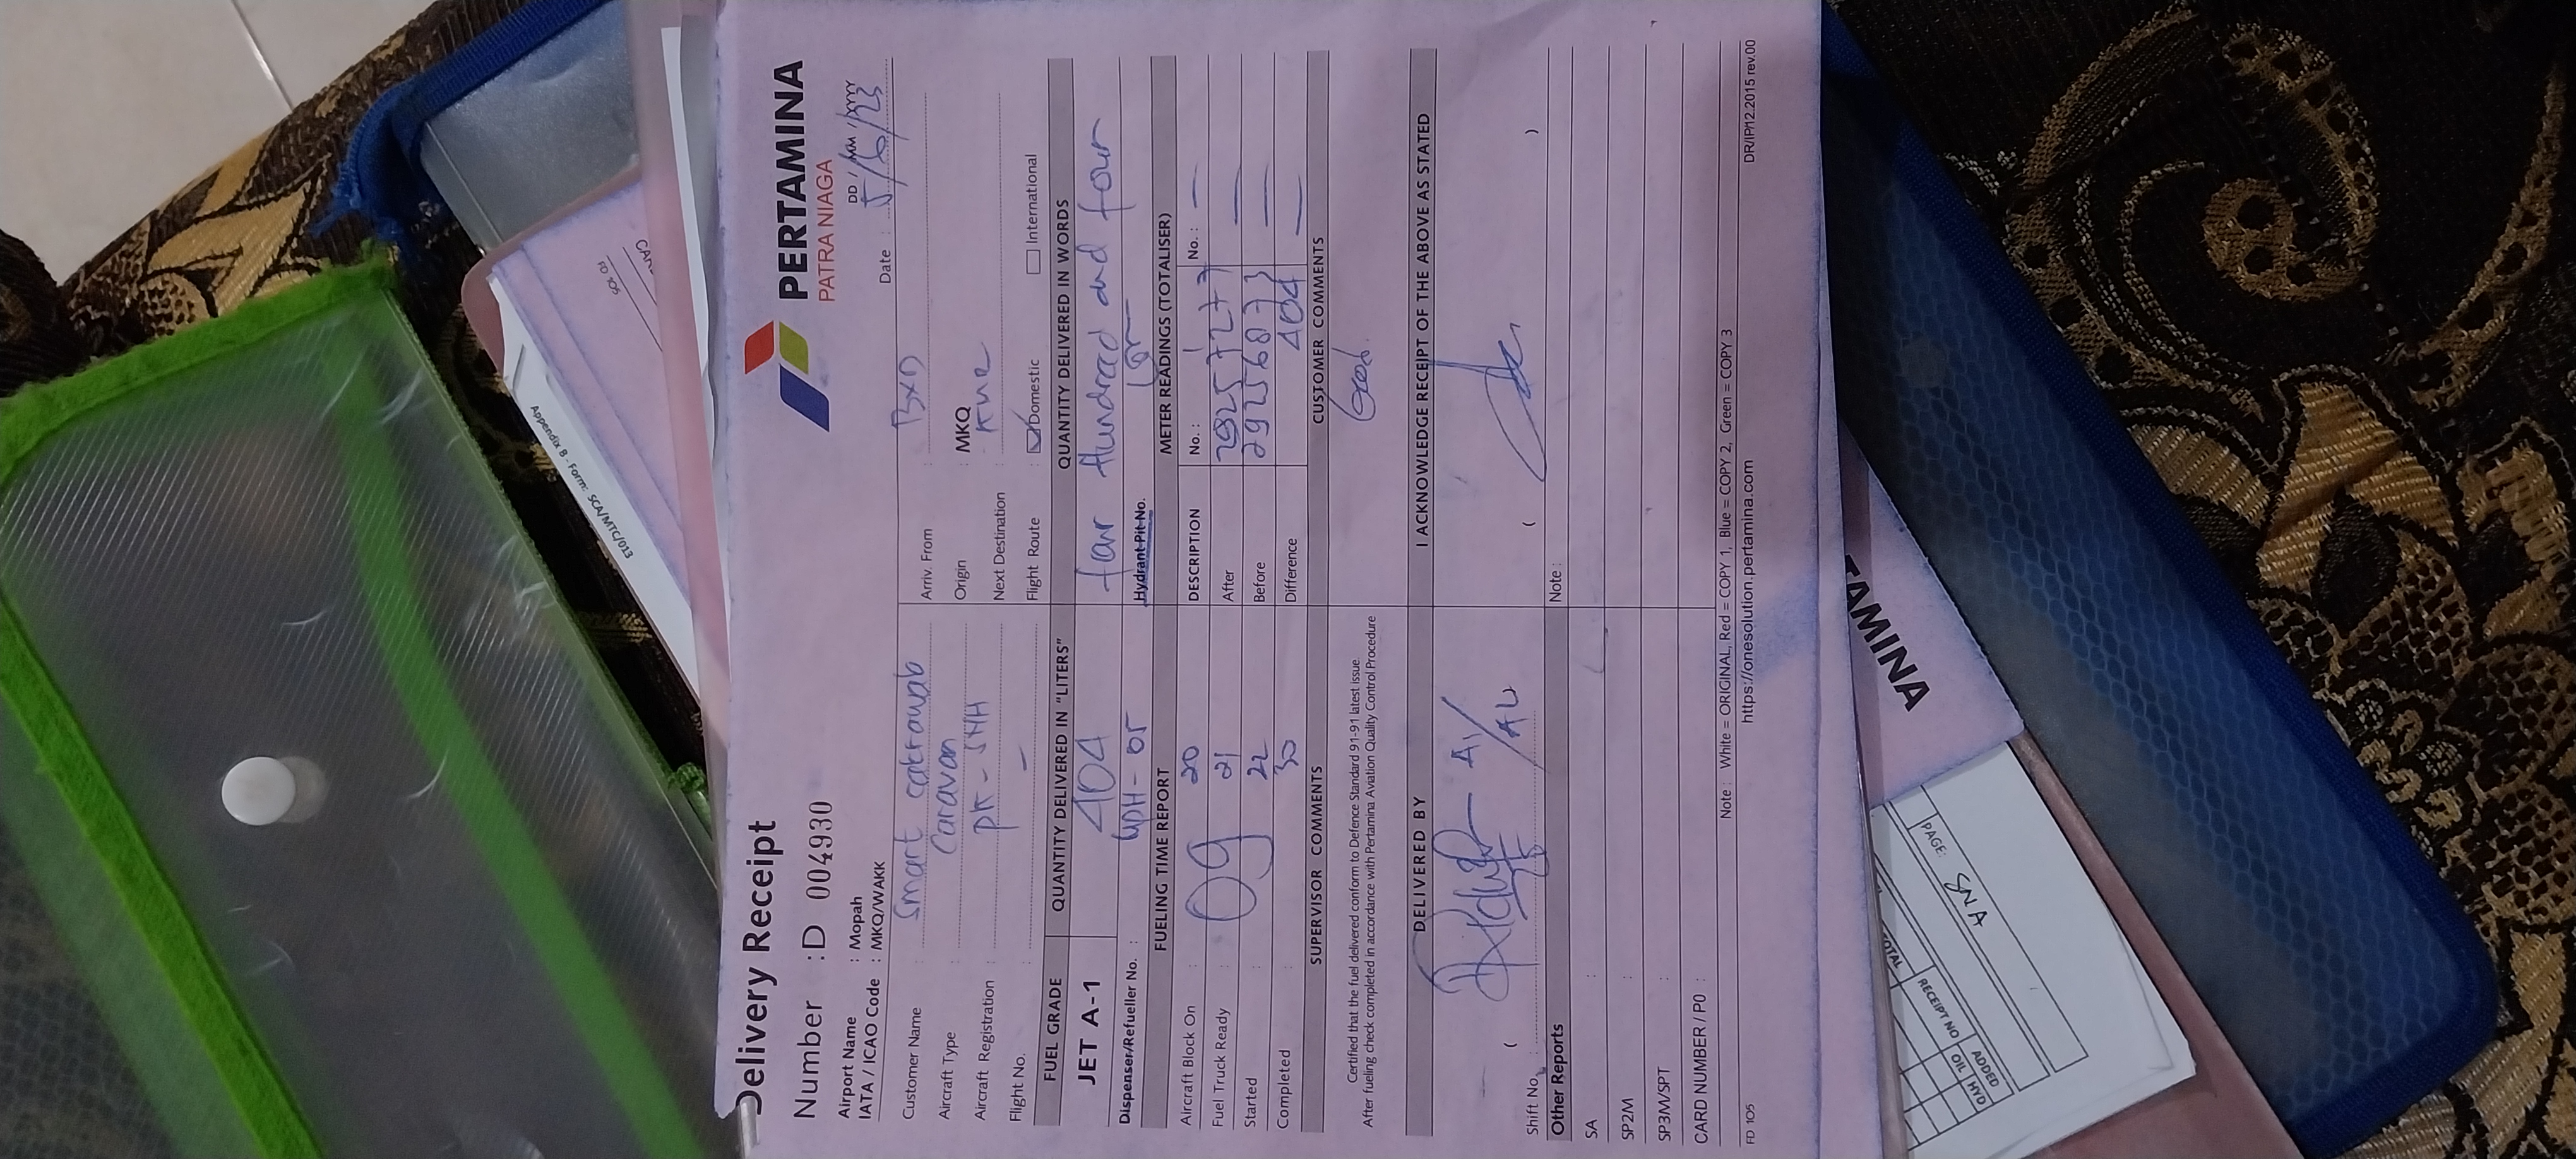 Delivery Receipt
PERTAMINA
PATRA NIAGA
Number : D 004930
DD / MM / YYYY
Date : 5/6/23
Airport Name : Mopah
IATA / ICAO Code : MKQ/WAKK
Customer Name : Smart
Arriv. From : BXD
Aircraft Type : Caravan
Origin : MKQ
Aircraft Registration : PK - SNH
Next Destination :
Flight No. : -
Flight Route : Domestic International
FUEL GRADE QUANTITY DELIVERED IN "LITERS" QUANTITY DELIVERED IN WORDS
JET A-1 404 four Hundred and four
Dispenser/Refueller No. :
Hydrant Pit No.
FUELING TIME REPORT METER READINGS (TOTALISER)
Aircraft Block On : 20
DESCRIPTION No. : No. : -
Fuel Truck Ready : 09 21
After
Started : 22
Before
Completed : 30
Difference 404
SUPERVISOR COMMENTS CUSTOMER COMMENTS
Good.
Certified that the fuel delivered conform to Defence Standard 91-91 latest issue.
After fueling check completed in accordance with Pertamina Aviation Quality Control Procedure
DELIVERED BY I ACKNOWLEDGE RECEIPT OF THE ABOVE AS STATED
Shift No. :
Other Reports Note :
SA :
SP2M :
SP3M/SPT :
CARD NUMBER / P0 :
Note : White = ORIGINAL, Red = COPY 1, Blue = COPY 2, Green = COPY 3
FD 105 https://onesolution.pertamina.com DR/IP/12.2015 rev.00
Appendix B - Form: SCA/MTC/013
TAMINA
PAGE:
RECEIPT NO
OIL ADDED